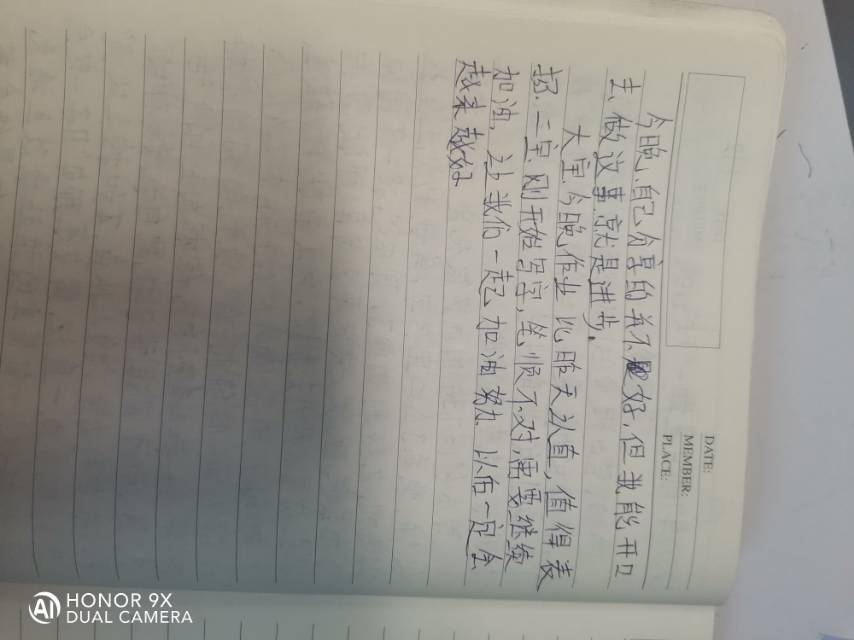 DATE:
MEMBER:
PLACE:
今晚,自己分享的并不是好,但我能开口
去做这事就是进步.
大宝今晚作业比昨天认真,值得表
扬.二宝刚开始写字,笔顺不对,需要继续
加油,让我们一起加油努力 以后一定会
越来越好
AI HONOR 9X
DUAL CAMERA